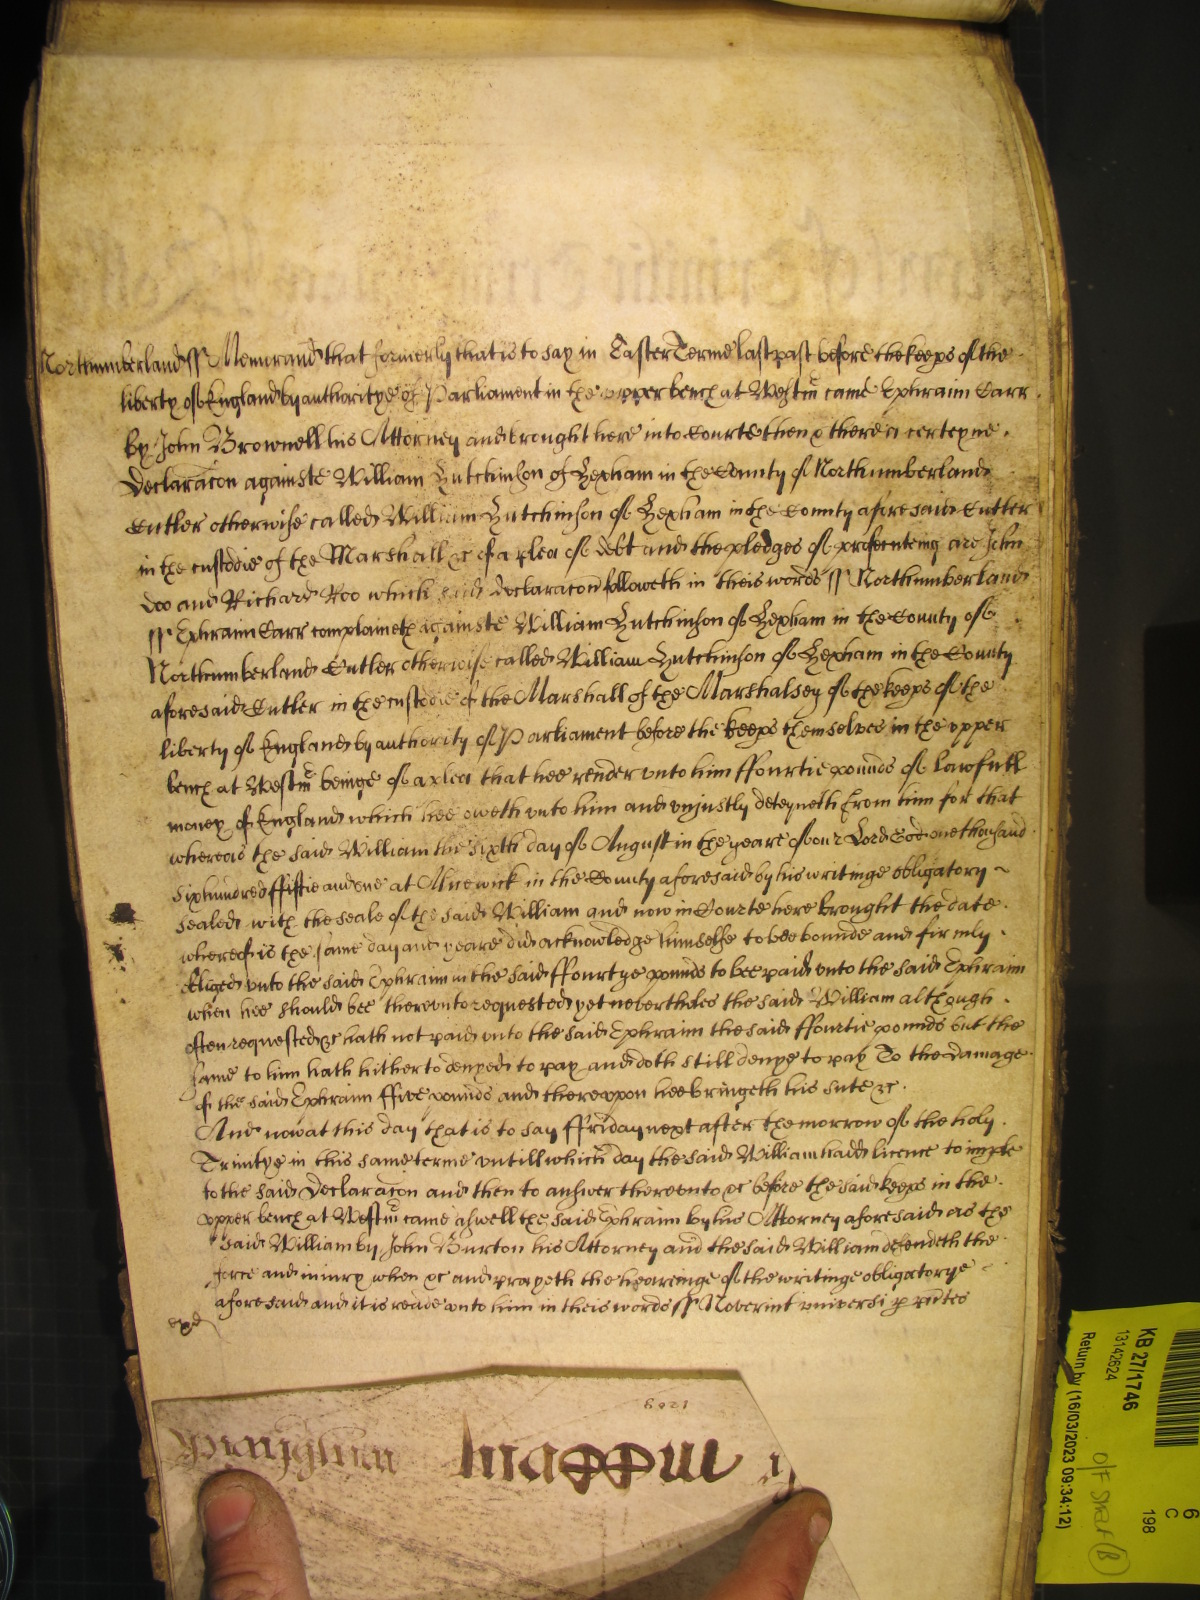 Northumberland ss Memorand that formerly that is to say in Easter Terme last past before the keeps of the
liberty of England by authoritye of Parliament in the upper bench at Westm came Ephraim Carr
by John Brownell his Attorney and brought here into Courte then & there a certeyne
Declaracon againste William Hutchinson of Hexham in the County of Northumberland
Cutler otherwise called William Hutchinson of Hexham in the County aforesaid Cutler
in the custodie of the Marshall &c of a plea of debt and the pledges of prosecuteing are John
Doo and Richard Roo which said Declaracon followeth in theis words ss Northumberland
ss Ephraim Carr complaineth againste William Hutchinson of Hexham in the County of
Northumberland Cutler otherwise called William Hutchinson of Hexham in the County
aforesaid Cutler in the custodie of the Marshall of the Marshalsey of the keeps of the
liberty of England by authority of Parliament before the keeps themselves in the upper
bench at Westm beinge of a plea that hee render unto him ffourtie pounds of lawfull
money of England which hee oweth unto him and unjustly deteyneth from him for that
whereas the said William the sixth day of August in the yeare of our Lord God one thousand
six hundred ffiftie and one at Alnewick in the County aforesaid by his writinge obligatory
sealed with the seale of the said William and now in Courte here brought the date
whereof is the same day and yeare did acknowledge himselfe to bee bounde and firmly
obliged unto the said Ephraim in the said ffourtye pounds to bee paid unto the said Ephraim
when hee should bee thereunto requested yet nevertheles the said William although
often requested &c hath not paid unto the said Ephraim the said ffourtie pounds but the
same to him hath hitherto denyed to pay and doth still denye to pay To the damage
of the said Ephraim ffive pounds and thereupon hee bringeth his sute &c
And now at this day that is to say ffriday next after the morrow of the holy
Trinitye in this same terme untill which day the said William hadd licence to imple
to the said Declaracon and then to answer thereunto &c before the said keeps in the
upper bench at Westm came aswell the said Ephraim by his Attorney aforesaid as the
said William by John Burton his Attorney and the said William defendeth the
force and iniury when &c and prayeth the hearinge of the writinge obligatorye
aforesaid and it is reade unto him in theis words ss Noverint universi p pntes
KB 27/1746
13142624
Return by (16/03/2023 09:34:12)
6
C
198